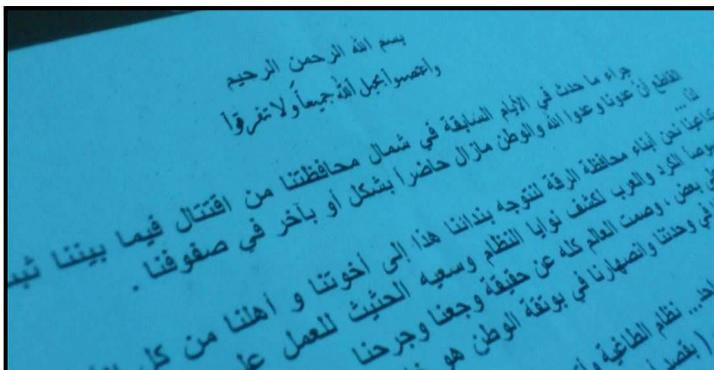 بسم الله الرحمن الرحيم
واعتصموا بحبل الله جميعاً ولا تفرقوا
جراء ما حدث في الأيام السابقة في شمال محافظتنا من اقتتال فيما بيننا
القاطع أن عدونا وعدوا الله والوطن مازال حاضراً بشكل أو بآخر في صفوفنا .
لذا...
نحن أبناء محافظة الرقة لنتوجه بندائنا هذا إلى أخوتنا و أهلنا من كل
الكرد والعرب لكشف نوايا النظام وسعيه الحثيث للعمل
بعض ، وصمت العالم كله عن حقيقة وجعنا وجرحنا
في وحدتنا وانصهارنا في بوتقة الوطن هو
نظام الطاغية